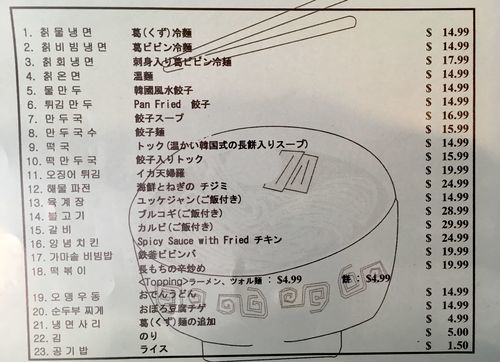 1. 칡 물 냉 면 葛(くず)冷麵 $ 14.99
2. 칡 비 빔 냉 면 葛ビビン冷麵 $ 14.99
3. 칡 회 냉 면 刺身入り葛ビビン冷麵 $ 17.99
4. 칡 온 면 温麵 $ 14.99
5. 물 만 두 韓國風水餃子 $ 14.99
6. 튀김 만 두 Pan Fried 餃子 $ 14.99
7. 만 두 국 餃子スープ $ 16.99
8. 만 두 국 수 餃子麵 $ 15.99
9. 떡 국 トック(温かい韓国式の長餅入りスープ) $ 14.99
10. 떡 만 두 국 餃子入りトック $ 15.99
11. 오징어 튀김 イカ天婦羅 $ 19.99
12. 해물 파전 海鮮とねぎの チジミ $ 24.99
13. 육 계 장 ユッケジャン(ご飯付き) $ 14.99
14. 불 고 기 ブルコギ(ご飯付き) $ 28.99
15. 갈 비 カルビ(ご飯付き) $ 29.99
16. 양 념 치 킨 Spicy Sauce with Fried チキン $ 24.99
17. 가마솥 비빔밥 鉄釜ビビンバ $ 19.99
18. 떡 볶 이 長もちの辛炒め $ 19.99
<Topping>ラーメン、ツォル麵 : $4.99 餅 : $4.99
19. 오 뎅 우 동 おでんうどん $ 14.99
20. 순두부 찌개 おぼろ豆腐チゲ $ 14.99
21. 냉 면 사 리 葛(くず)麵の追加 $ 4.99
22. 김 のり $ 5.00
23. 공 기 밥 ライス $ 1.50